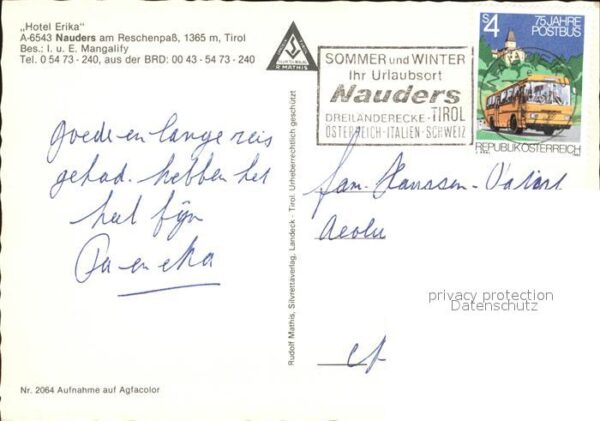 „Hotel Erika"
A-6543 Nauders am Reschenpaß, 1365 m, Tirol
Bes.: I. u. E. Mangalify
Tel. 0 54 73 - 240, aus der BRD: 00 43 - 54 73 - 240
R. MATHIS
SOMMER und WINTER
Ihr Urlaubsort
Nauders
DREILÄNDERECKE - TIROL
ÖSTERREICH - ITALIEN - SCHWEIZ
S 4
75 JAHRE
POSTBUS
REPUBLIK ÖSTERREICH
Goede en lange reis
gehad. hebben het
heel fijn
Pa en
Fam. Hanssen-
privacy protection
Datenschutz
Rudolf Mathis, Silvrettaverlag, Landeck - Tirol. Urheberrechtlich geschützt
Nr. 2064 Aufnahme auf Agfacolor